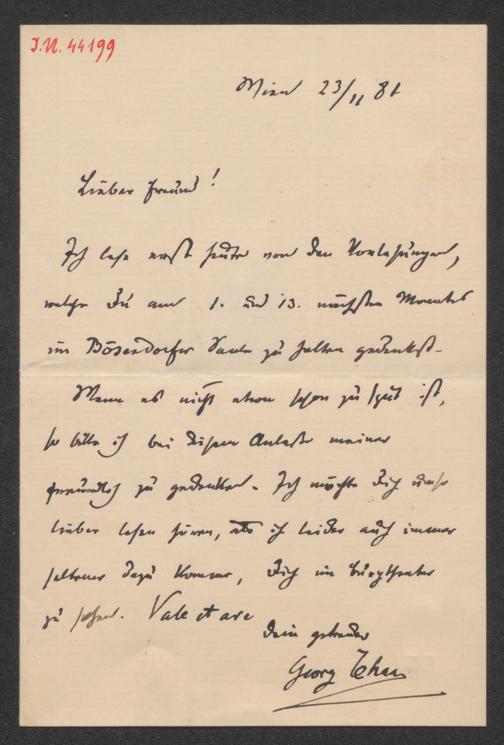 I.N. 44199
Wien 23/11 81
Lieber Freund!
Ich lese erst heute von den Vorlesungen,
welche Du am 1. und 13. nächsten Monates
im Bösendorfer Saale zu halten gedenkst.
Wenn es nicht etwa schon zu spät ist,
so bitte ich bei diesem Anlasse meiner
freundlich zu gedenken. Ich möchte Dich umso
lieber lesen hören, als ich leider auch immer
seltener dazu komme, Dich im Burgtheater
zu sehen. Vale et ave
Dein getreuer
Georg